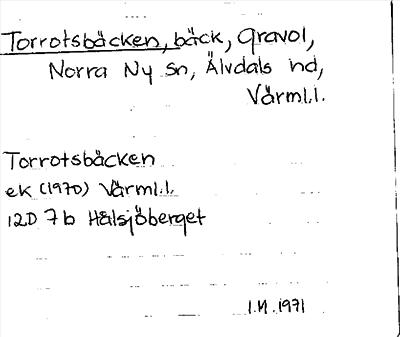 Torrotsbäcken, bäck, Gravol,
Norra Ny sn, Älvdals hd,
Värml.l.
Torrotsbäcken
ek (1970) Värml.l.
12D 7b Halsjöberget
1971